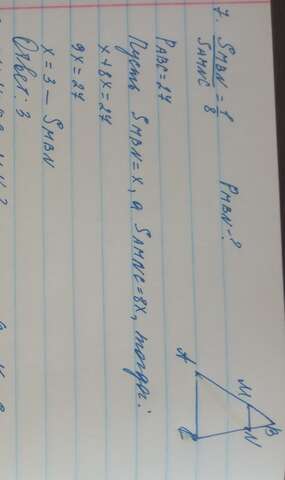 7. S_MBN / S_AMNC = 1/8 P_MBN - ?
P_ABC = 27
Пусть S_MBN = x, а S_AMNC = 8x, тогда:
x + 8x = 27
9x = 27
x = 3 – S_MBN
Ответ: 3
A
M
B
N